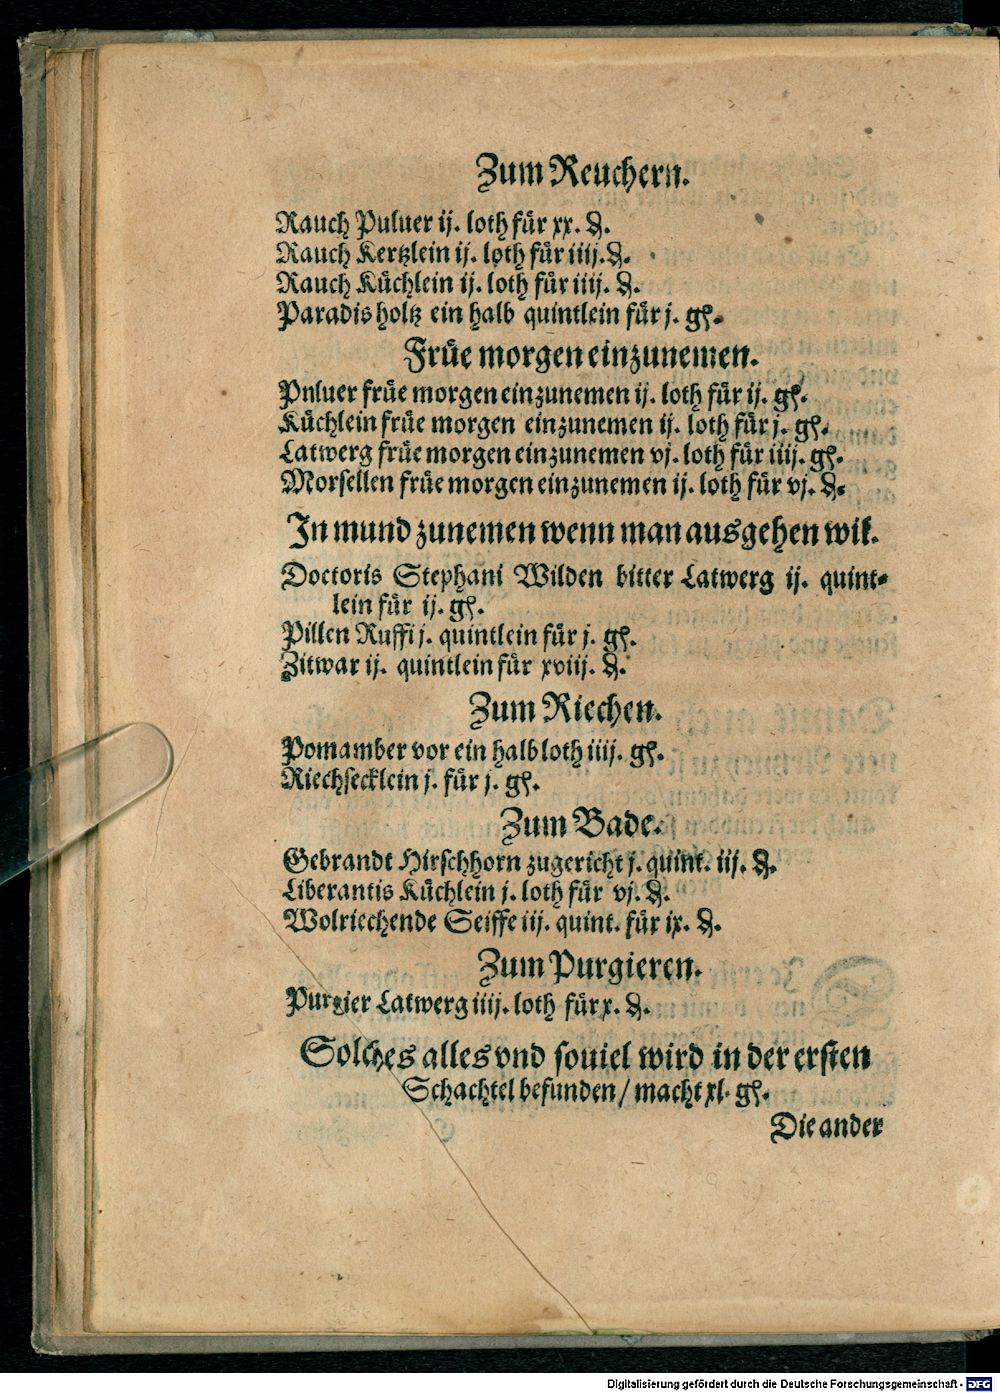 Zum Reuchern.
Rauch Puluer ij. loth für xx. ₰.
Rauch Kertzlein ij. loth für iiij. ₰.
Rauch Küchlein ij. loth für iiij. ₰.
Paradisholtz ein halb quintlein für j. gl.
Früe morgen einzunemen.
Pnluer früe morgen einzunemen ij. loth für ij. gl.
Küchlein früe morgen einzunemen ij. loth für j. gl.
Latwerg früe morgen einzunemen vj. loth für iiij. gl.
Morsellen früe morgen einzunemen ij. loth für vj. ₰.
In mund zunemen wenn man ausgehen wil.
Doctoris Stephani Wilden bitter Latwerg ij. quint-
lein für ij. gl.
Pillen Ruffi j. quintlein für j. gl.
Zitwar ij. quintlein für xviij. ₰.
Zum Riechen.
Pomamber vor ein halb loth iiij. gl.
Riechsecklein j. für j. gl.
Zum Bade.
Gebrandt Hirschhorn zugericht j. quint. iij. ₰.
Liberantis Küchlein j. loth für vj. ₰.
Wolriechende Seiffe iij. quint. für ix. ₰.
Zum Purgieren.
Purgier Latwerg iiij. loth für x. ₰.
Solches alles vnd souiel wird in der ersten
Schachtel befunden / macht xl. gl.
Die ander
Digitalisierung gefördert durch die Deutsche Forschungsgemeinschaft - DFG